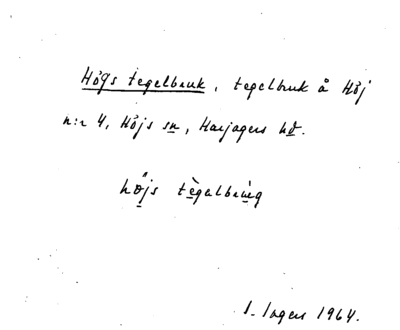 Högs tegelbruk, tegelbruk å Höj
n:r 4, Höjs sn, Harjagers hd.
höjs tègalbrùg
I. Ingers 1964.